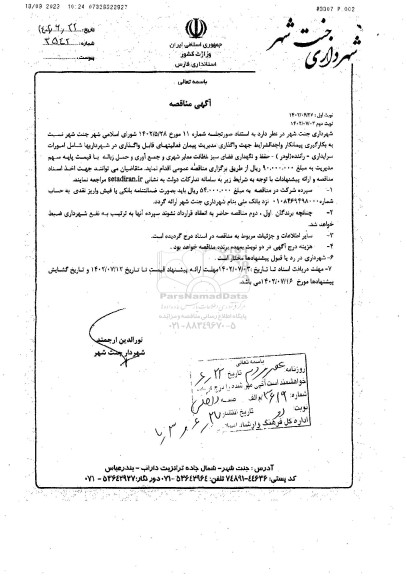 13/09 2023 16:24 07328222927
#0307 P.002
شهرداری جنت شهر
جمهوری اسلامی ایران
وزارت کشور
استانداری فارس
تاریخ:
شماره: ۳۵۴۲
پیوست:
باسمه تعالی
آگهی مناقصه
نوبت اول: ۱۴۰۲/۰۶/۲۷
نوبت دوم ۱۴۰۲/۰۷/۰۳
شهرداری جنت شهر در نظر دارد به استناد صورتجلسه شماره ۱۱ مورخ ۱۴۰۲/۵/۲۸ شورای اسلامی شهر جنت شهر نسبت
به بکارگیری پیمانکار واجدالشرایط جهت واگذاری مدیریت پیمان فعالیتهای قابل واگذاری در شهرداریها شامل امورات
سرایداری - راننده(لودر) - حفظ و نگهداری فضای سبز نظافت معابر شهری و جمع آوری و حمل زباله با قیمت پایه سهم
مدیریت به مبلغ ۹۰.۰۰۰.۰۰۰ ریال از طریق برگزاری مناقصه عمومی اقدام نماید. متقاضیان می توانند جهت اخذ اسناد
مناقصه و ارائه پیشنهادات با توجه به شرایط زیر به سامانه تدارکات دولت به نشانی setadiran.ir مراجعه نمایند.
۱- سپرده شرکت در مناقصه به مبلغ ۵۴.۰۰۰.۰۰۰ ریال باید بصورت ضمانتنامه بانکی یا فیش واریز نقدی به حساب
شماره ۰۱۰۸۴۶۹۴۹۸۰۰۰ نزد بانک ملی بنام شهرداری جنت شهر ارائه گردد.
۲- چنانچه برندگان اول، دوم مناقصه حاضر به انعقاد قرارداد نشوند سپرده آنها به ترتیب به نفع شهرداری ضبط
خواهد شد.
۳- سایر اطلاعات و جزئیات مربوط به مناقصه در اسناد درج گردیده است.
۴- هزینه درج آگهی در دو نوبت بعهده برنده مناقصه خواهد بود.
۶- شهرداری در رد یا قبول پیشنهادها مختار است.
۷- مهلت دریافت اسناد تا تاریخ ۱۴۰۲/۰۷/۰۳ مهلت ارائه پیشنهاد قیمت تا تاریخ ۱۴۰۲/۰۷/۱۳ و تاریخ گشایش
پیشنهادها مورخ ۱۴۰۲/۰۷/۱۶ می باشد.
ParsNamadData
پایگاه اطلاع رسانی مناقصه و مزایده
۰۲۱-۸۸۳۴۹۶۷۰-۵
نورالدین ارجمند
شهردار جنت شهر
باسمه تعالی
روزنامه عصر مردم تاریخ ۶/۲۲
خواهشمند است آگهی مهر شده را درج
شماره: ۳۶۱۹ م الف
نوبت تاریخ انتشار ۶/۲۷
اداره کل فرهنگ و ارشاد اسلامی
آدرس: جنت شهر- شمال جاده ترانزیت داراب - بندرعباس
کد پستی: ۴۴۶۳۶-۷۴۸۹۱ تلفن: ۵۳۶۴۲۹۶۴-۰۷۱ دورنگار: ۵۳۶۴۲۹۲۷-۰۷۱